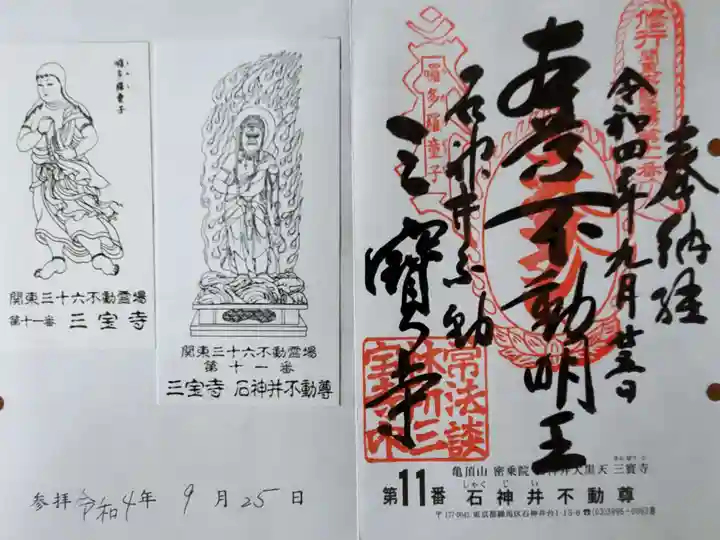 嚩多羅童子
関東三十六不動霊場
第十一番 三宝寺
関東三十六不動霊場
第十一番
三宝寺 石神井不動尊
参拝 令和4年 9月25日
奉納経
令和四年九月廿五日
大聖不動明王
石神井不動
三寳寺
多羅童子
常法談
三寳寺
第11番 石神井不動尊
しゃくじい
東京都練馬区石神井台1-15-6